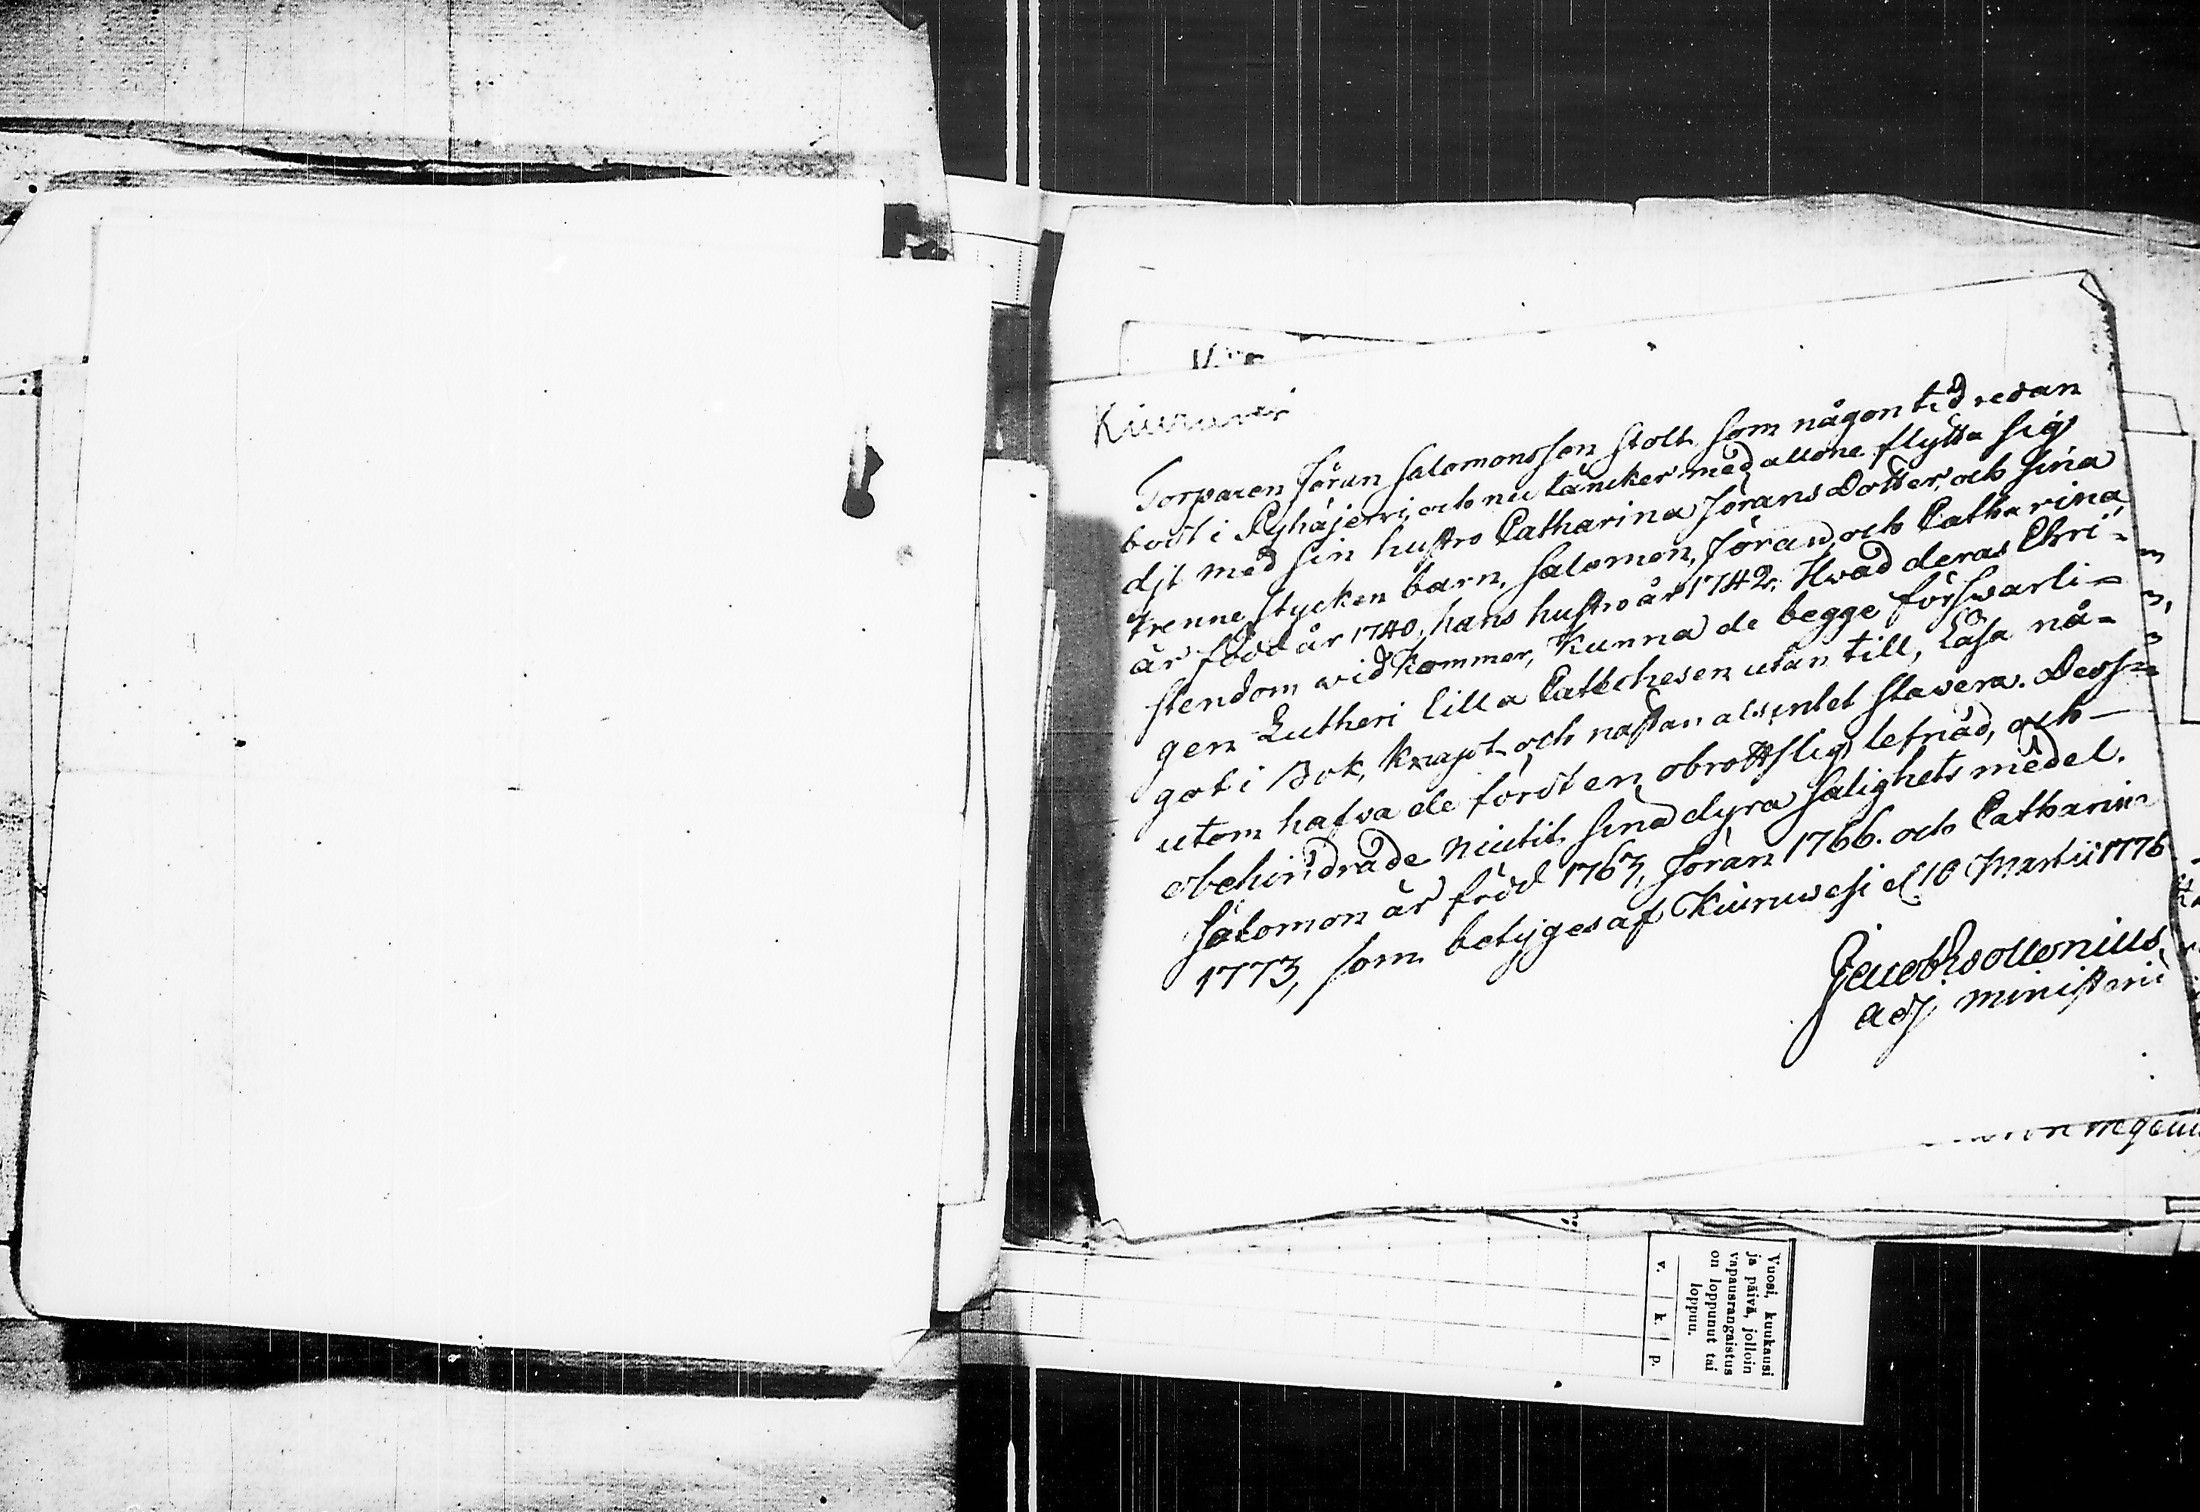 Kiuruvesi
Torparen Jöran Salomonsson Stolt som någon tid redan
bodt i Pyhäjerfvi, och nu täncker med allone flytta sig
djt med sin hustro Catharina Jörans Dotter, och sina
trenne stycken barn, Salomon, Jöran, och Catharina,
är född år 1740, hans hustro år 1742. Hvad deras Chri-
stendom widkommer, kunna de begge försvarli-
gen Lutheri lilla Catechesen utan till, läsa nå-
got i Bok, knapt och nästan alsintet stavera. Dess-
utom hafva de fördt en obrottslig lefnad, och
obehindrade niutit sina dyra salighets medel.
Salomon är född 1763, Jöran 1766. och Catharina
1773, som betyges af Kiuruwesi d 10 Martii 1776
Jacob Wollenius
adj ministerii
Vuosi, kuukausi
ja päivä, jolloin
vapausrangaistus
on loppunut tai
loppuu.
v. k. p.